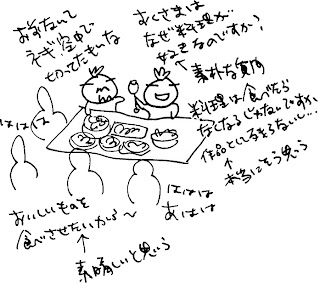 ネギ空中で
切ってたもいな
あじさまは
なぜ料理が…
好きなのですか?
素朴な質問
料理は食べたら
なくなるじゃないですか
作品としてのこらないし…
本当にそう思う
ははは
ははは
あはは
おいしいものを
食べさせたいから〜
素晴しいと思う